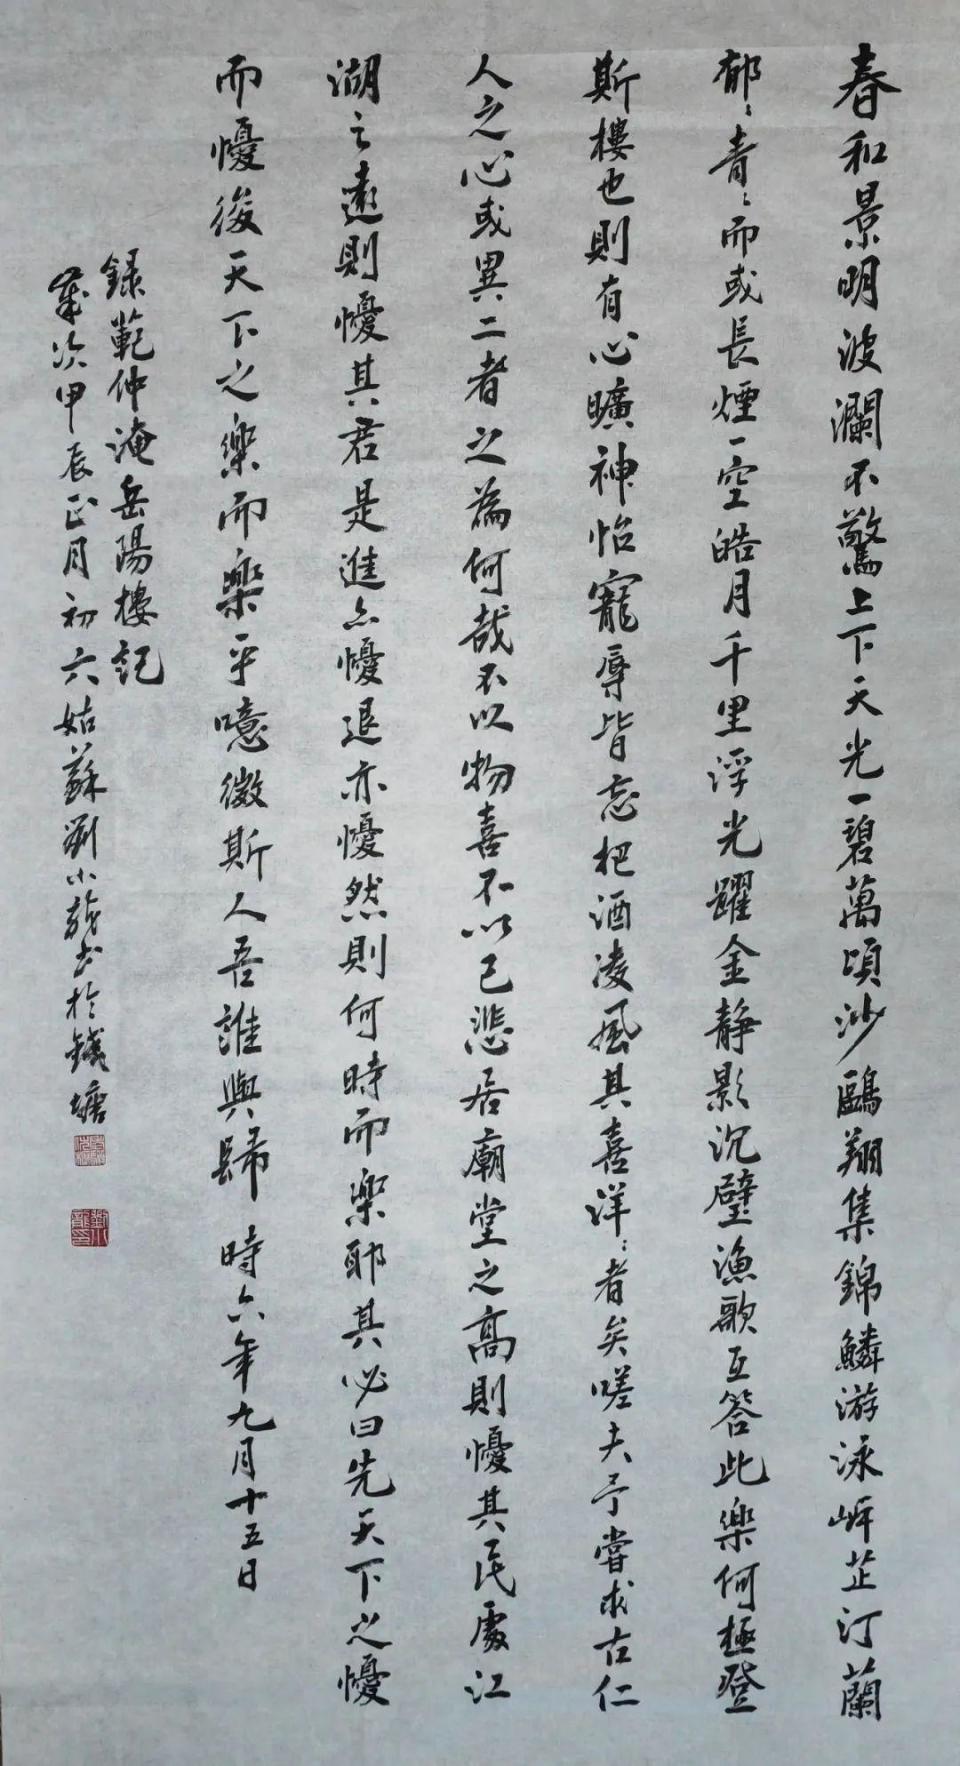 春和景明波瀾不驚上下天光一碧萬頃沙鷗翔集錦鱗游泳岸芷汀蘭
郁〻青〻而或長煙一空皓月千里浮光躍金静影沉璧漁歌互答此樂何極登
斯樓也則有心曠神怡寵辱皆忘把酒凌風其喜洋〻者矣嗟夫予嘗求古仁
人之心或異二者之為何哉不以物喜不以己悲居廟堂之高則懮其民處江
湖之遠則懮其君是進亦懮退亦懮然則何時而樂耶其必曰先天下之懮
而懮後天下之樂而樂乎噫微斯人吾誰與歸 時六年九月十五日
録範仲淹岳陽樓記
歲次甲辰正月初六姑蘇劉小龍书於錢塘